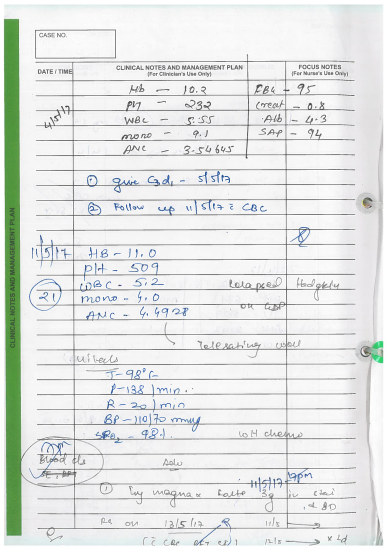 CASE NO.
DATE / TIME
CLINICAL NOTES AND MANAGEMENT PLAN
(For Clinician's Use Only)
FOCUS NOTES
(For Nurse's Use Only)
4/5/17
Hb - 10.2
plt - 232
WBC - 5.55
mono - 9.1
ANC - 3.54645
FBG - 95
Creat - 0.8
Alb - 4.3
SAP - 94
① give C3d1 - 5/5/17
② Follow up 11/5/17 c̄ CBC
11/5/17
21
HB - 11.0
plt - 509
WBC - 5.2
mono - 4.0
ANC - 4.4928
relapsed Hodgkin
on GDP
Tolerating well
Vitals
T - 98°F
P - 138/min
R - 20/min
BP - 110/70 mmHg
SPO2 - 98%
Blood c/s
11/5/17
Inj magnex forte 3g iv
on 13/5/17
11/5
12/5
CLINICAL NOTES AND MANAGEMENT PLAN